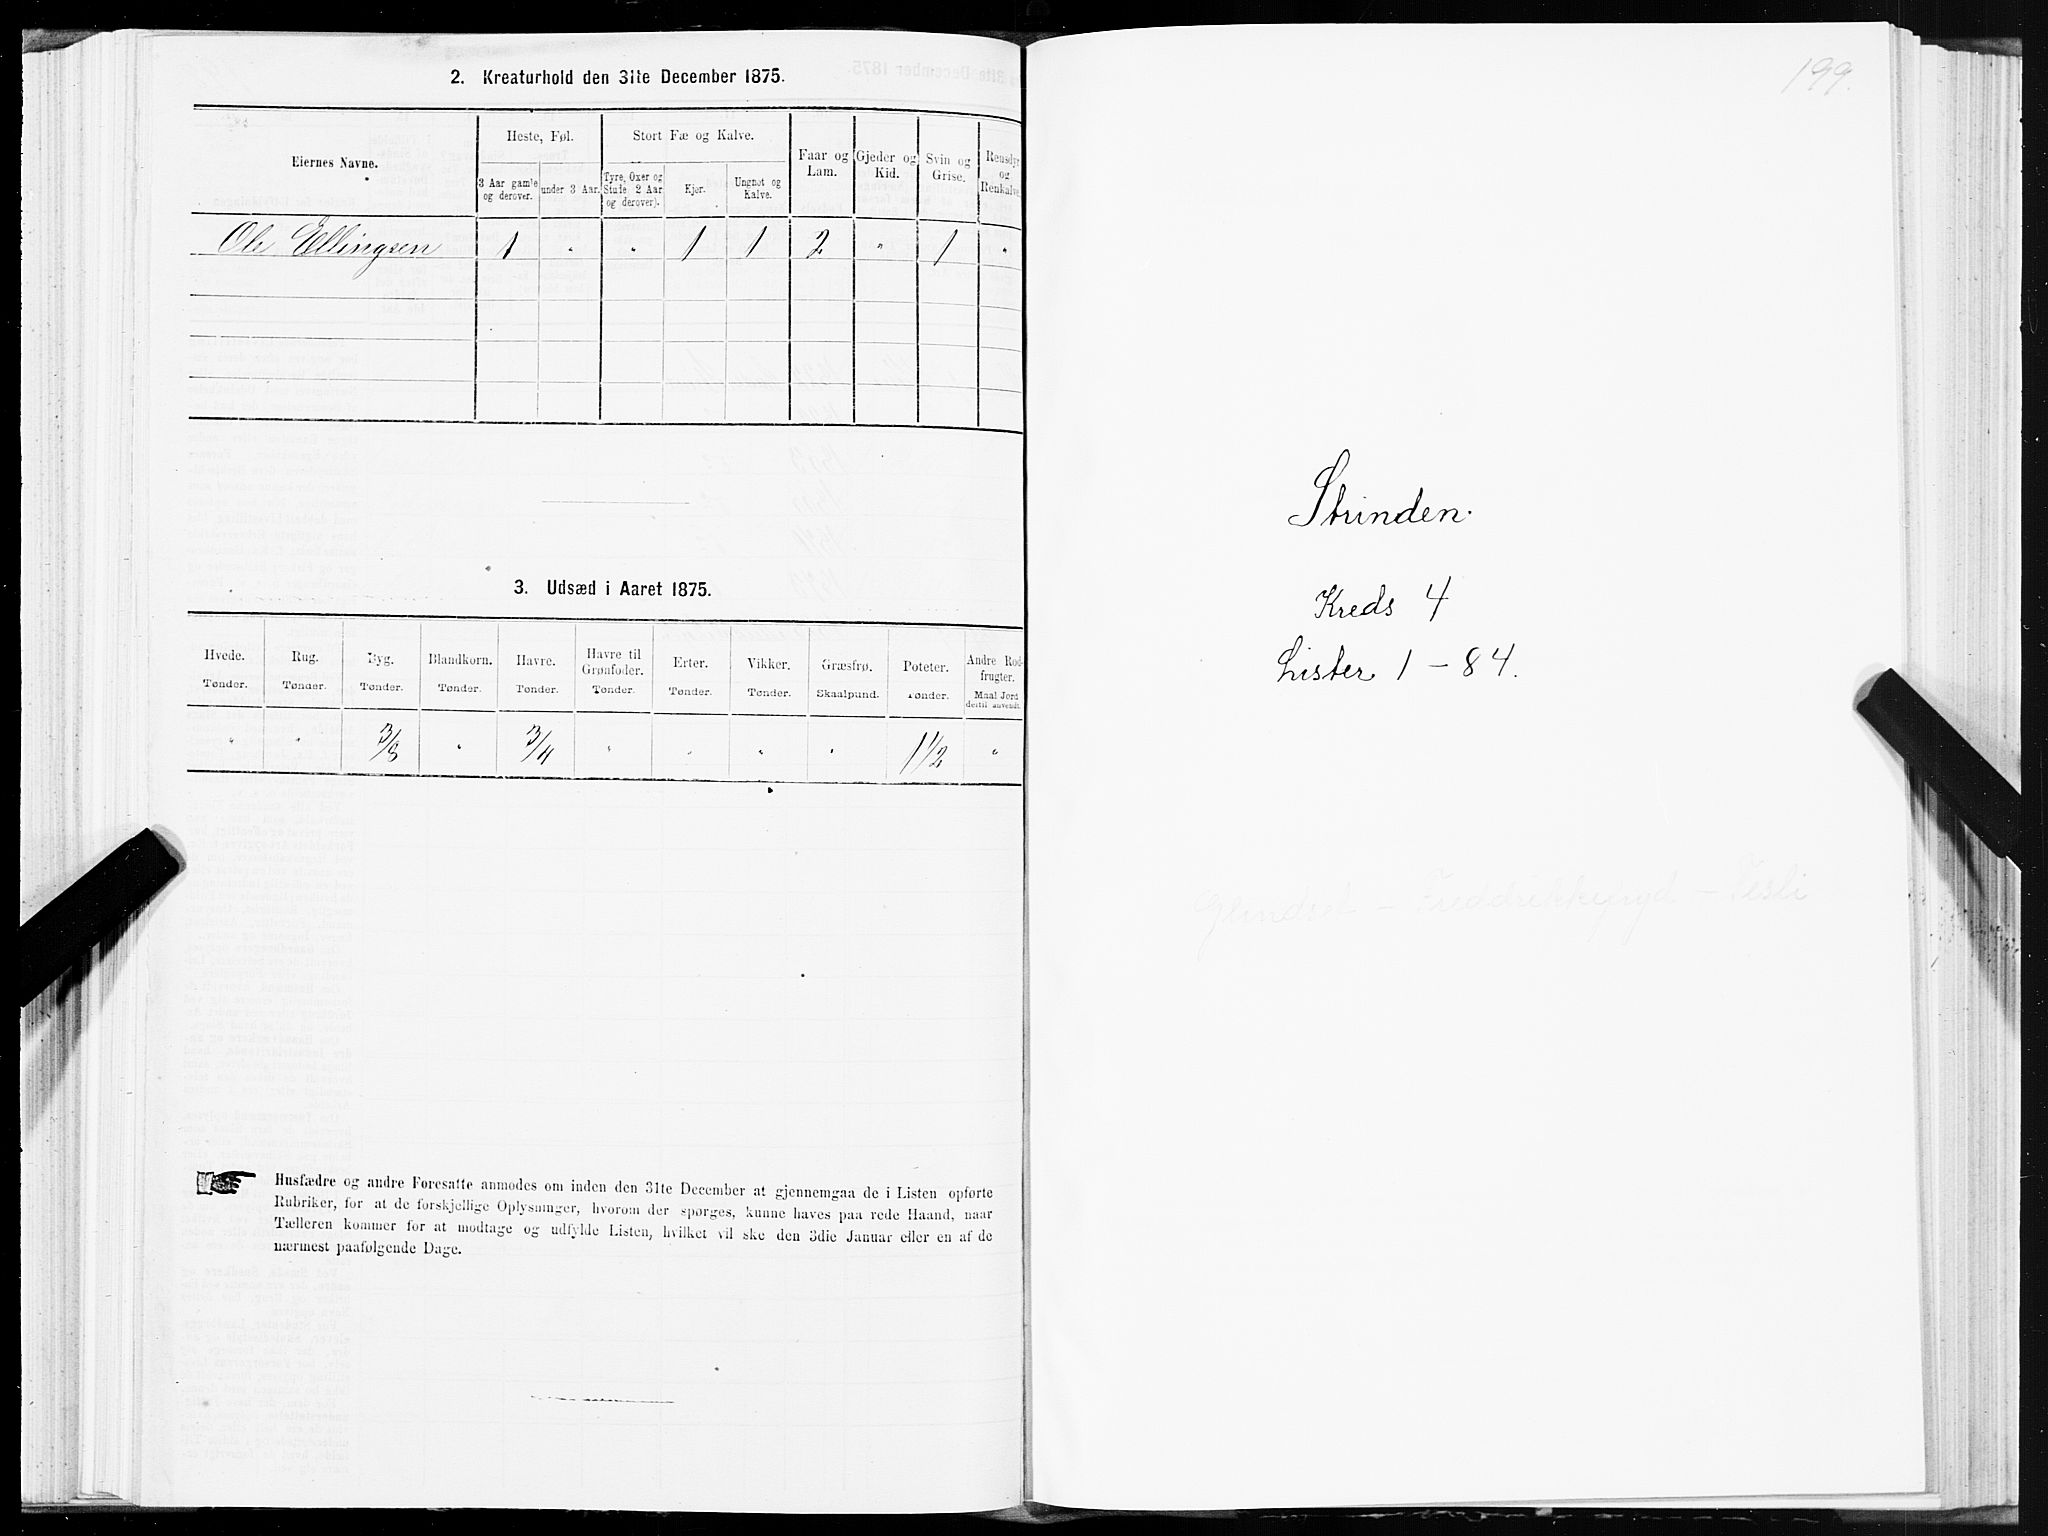 2. Kreaturhold den 31te December 1875.
Eiernes Navne.
Heste, Føl.
Stort Fæ og Kalve.
3 Aar gamle og derover.
under 3 Aar.
Tyre, Oxer og Stute 2 Aar og derover).
Kjør.
Ungnøt og Kalve.
Faar og Lam.
Gjeder og Kid.
Svin og Grise.
Rensdyr og Renkalve
Ole Ellingsen 1 " " 1 1 2 " 1 "
3. Udsæd i Aaret 1875.
Hvede. Rug. Byg. Blandkorn. Havre. Havre til Grønfoder. Erter. Vikker. Græsfrø. Poteter. Andre Rodfrugter.
Tønder. Tønder. Tønder. Tønder. Tønder. Tønder. Tønder. Tønder. Skaalpund. Tønder. Maal Jord dertil anvendt.
" " 3/8 " 3/4 " " " " 1 1/2 "
Husfædre og andre Foresatte anmodes om inden den 31te December at gjennemgaa de i Listen opførte
Rubriker, for at de forskjellige Oplysninger, hvorom der spørges, kunne haves paa rede Haand, naar
Tælleren kommer for at modtage og udfylde Listen, hvilket vil ske den 3die Januar eller en af de
nærmest paafølgende Dage.
199.
Strinden.
Kreds 4
Lister 1 - 84.